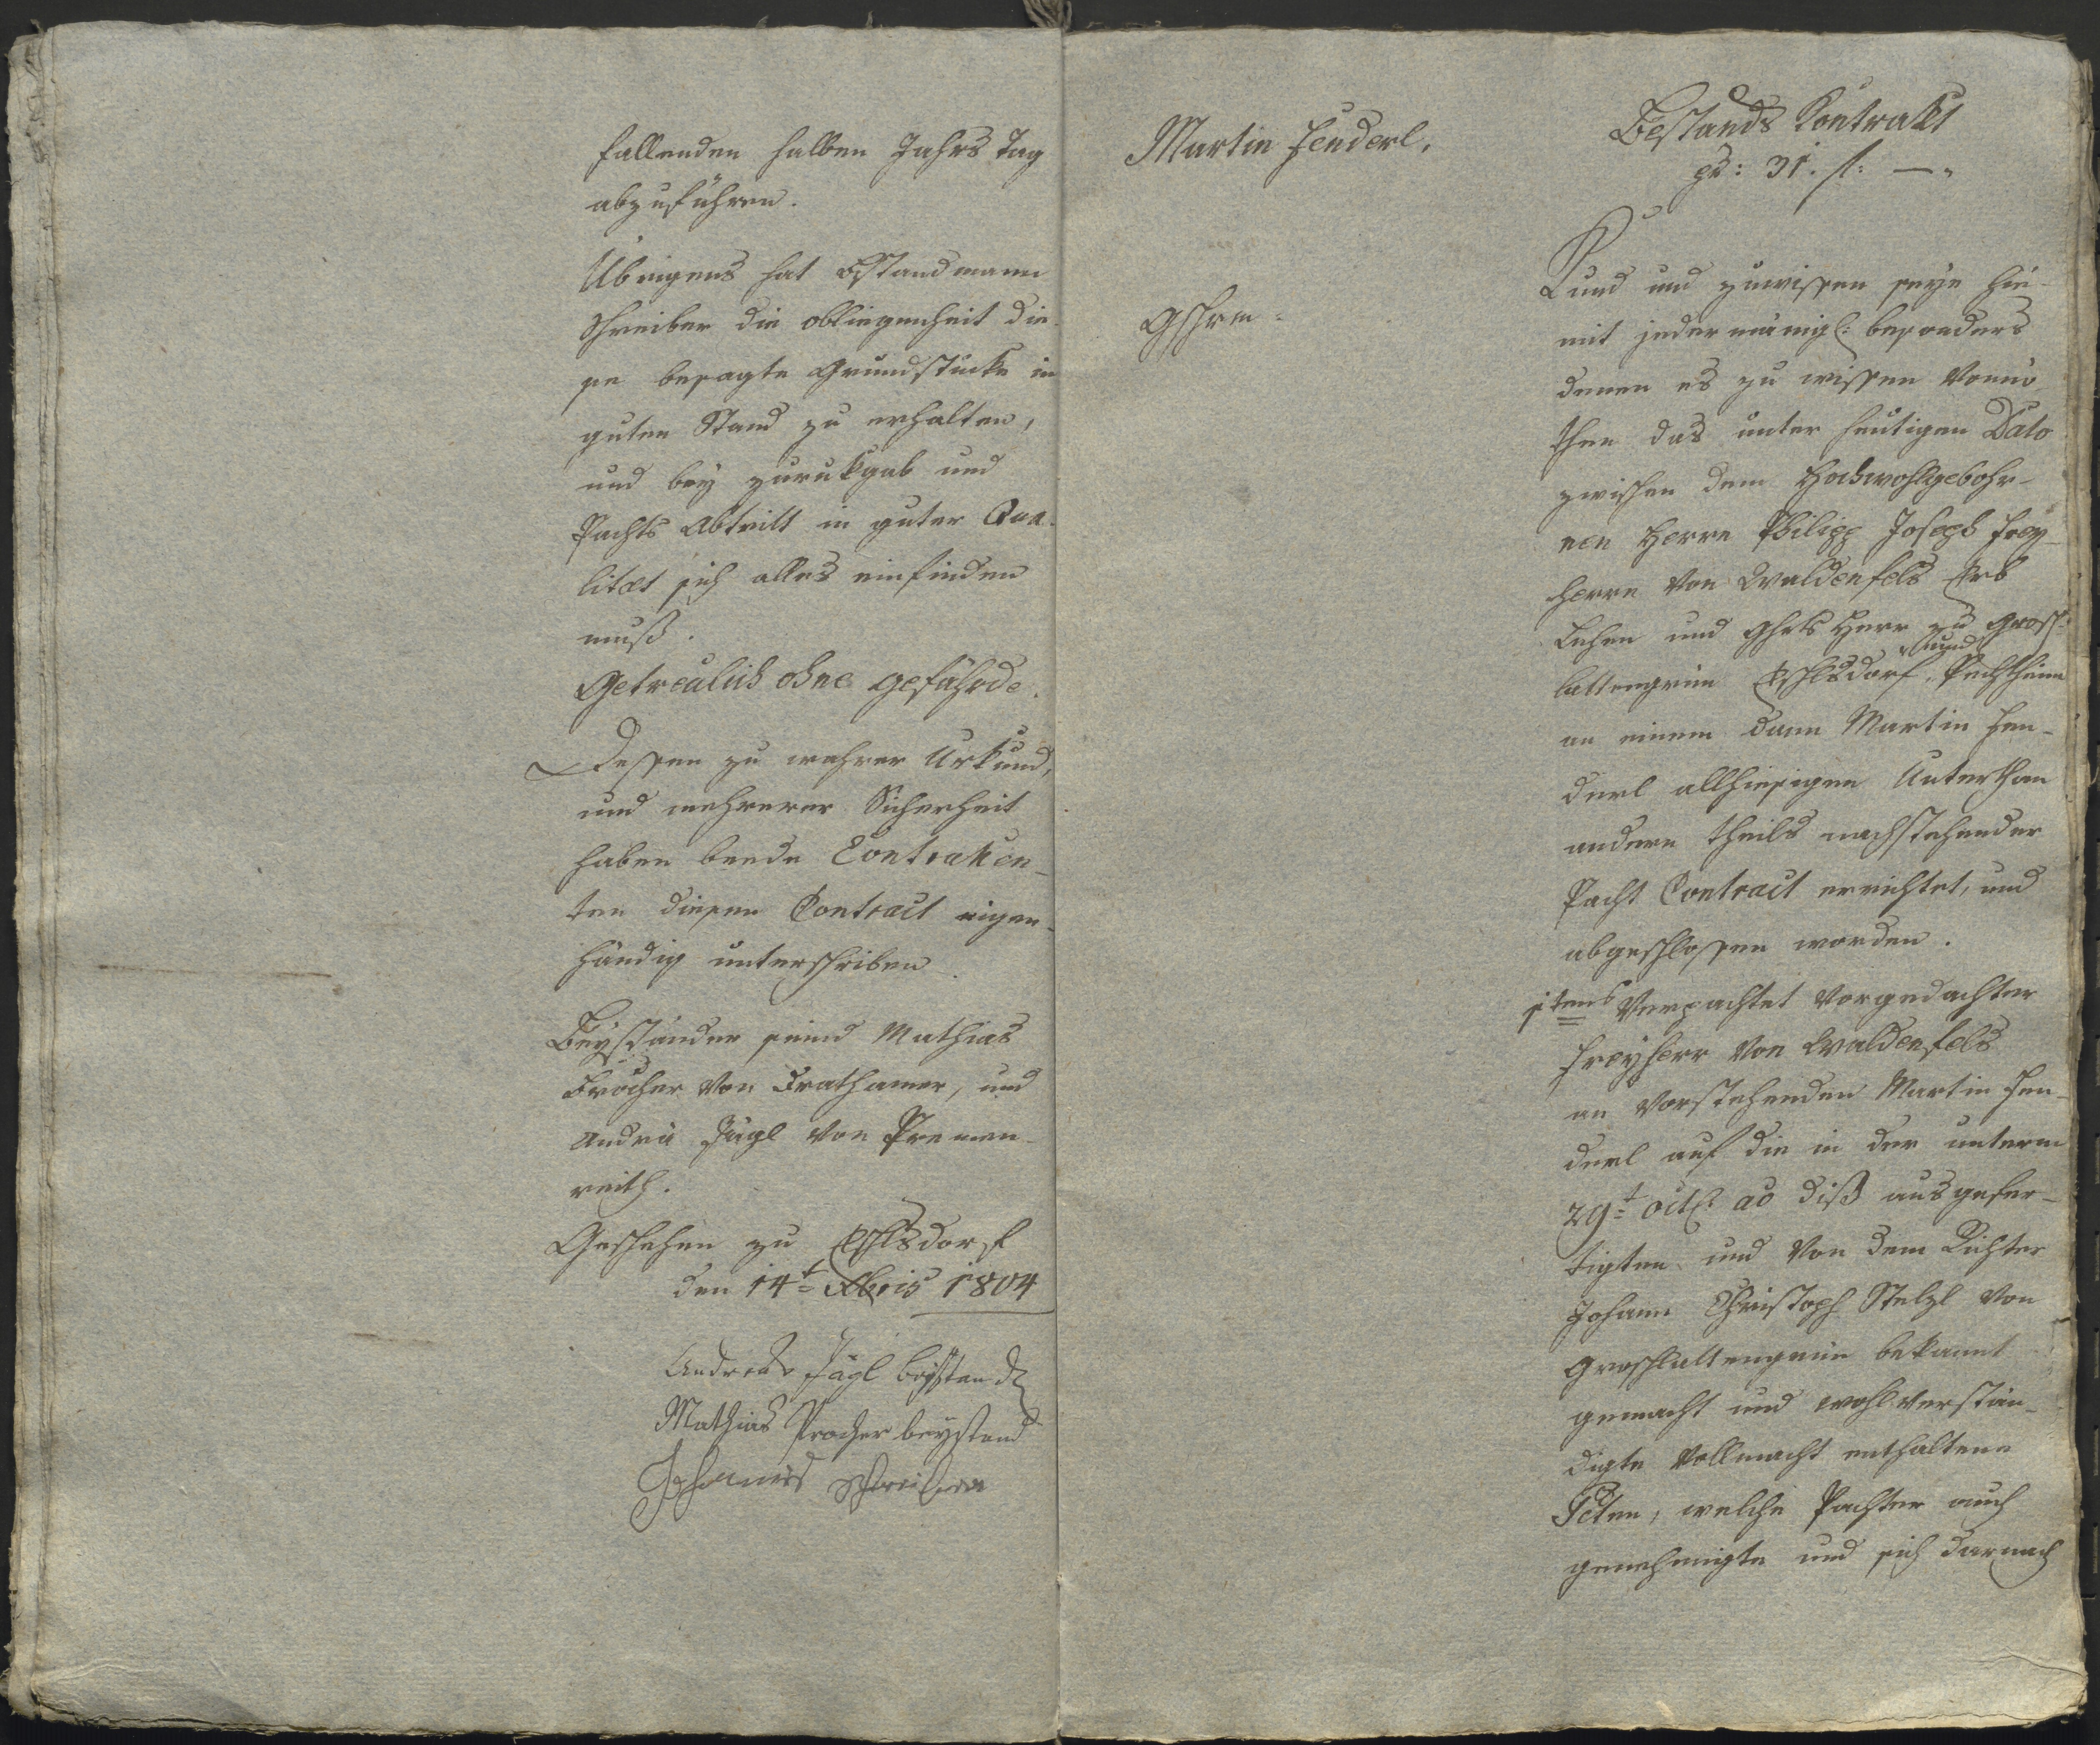 fallenden halben Jahrs Tag
abzuführen.
Übrigens hat Bstandmann
Schreiber die obliegenheit die-
se besagte Grundstücke in
guten Stand zu erhalten,
und bey zurukgab und
Pachts Abtritt in guter Qua-
litæt sich alles einfinden
muß.
Getreülich ohne gefährde.
Dessen zu wahrer Urkund,
und mehrerer Sicherheit
haben beede Contrahen-
ten diesen Contract eigen-
händig unterschriben.
Beyständer seind Mathias
Brocher von Frathamer, und
Andrä Jägl von Premen-
reith.
Geschehen zu
den 14t Xbris 1804
Andreas Jägl beystand
Mathias Procher beystand
Johannes Schreiber
Martin Henderl.
Bestands Contrakt
pr: 31. f: —
Kund und zuwissen seye hie-
mit jedermänigl: besonders
denen es zu wissen Vonnö-
then das unter heutigen Dato
zwischen dem Hochwohlgebohr-
nen Herrn Philipp Joseph Frey-
herrn von Waldenfels Erb
Lehen und Ghrts Herr zu Grosch-
und
lattengrün
an einem dann Martin Hen-
derl allhiesigen Unterthan
andern theils nachstehender
Pacht Contract errichtet, und
abgeschlossen worden.
1tens Verpachtet vorgedachter
Freyherr von Waldenfels
an vorstehenden Martin Hen-
derl auf die in der unterm
29t octb: ao diß ausgefer-
tigten und von dem Richter
Johann Christoph Stelzl von
Groschlattengrün bekannt
gemacht und wohl verstän-
digte Vollmacht enthaltene
Pcten, welche Pachter auch
genehmigte und sich darnach